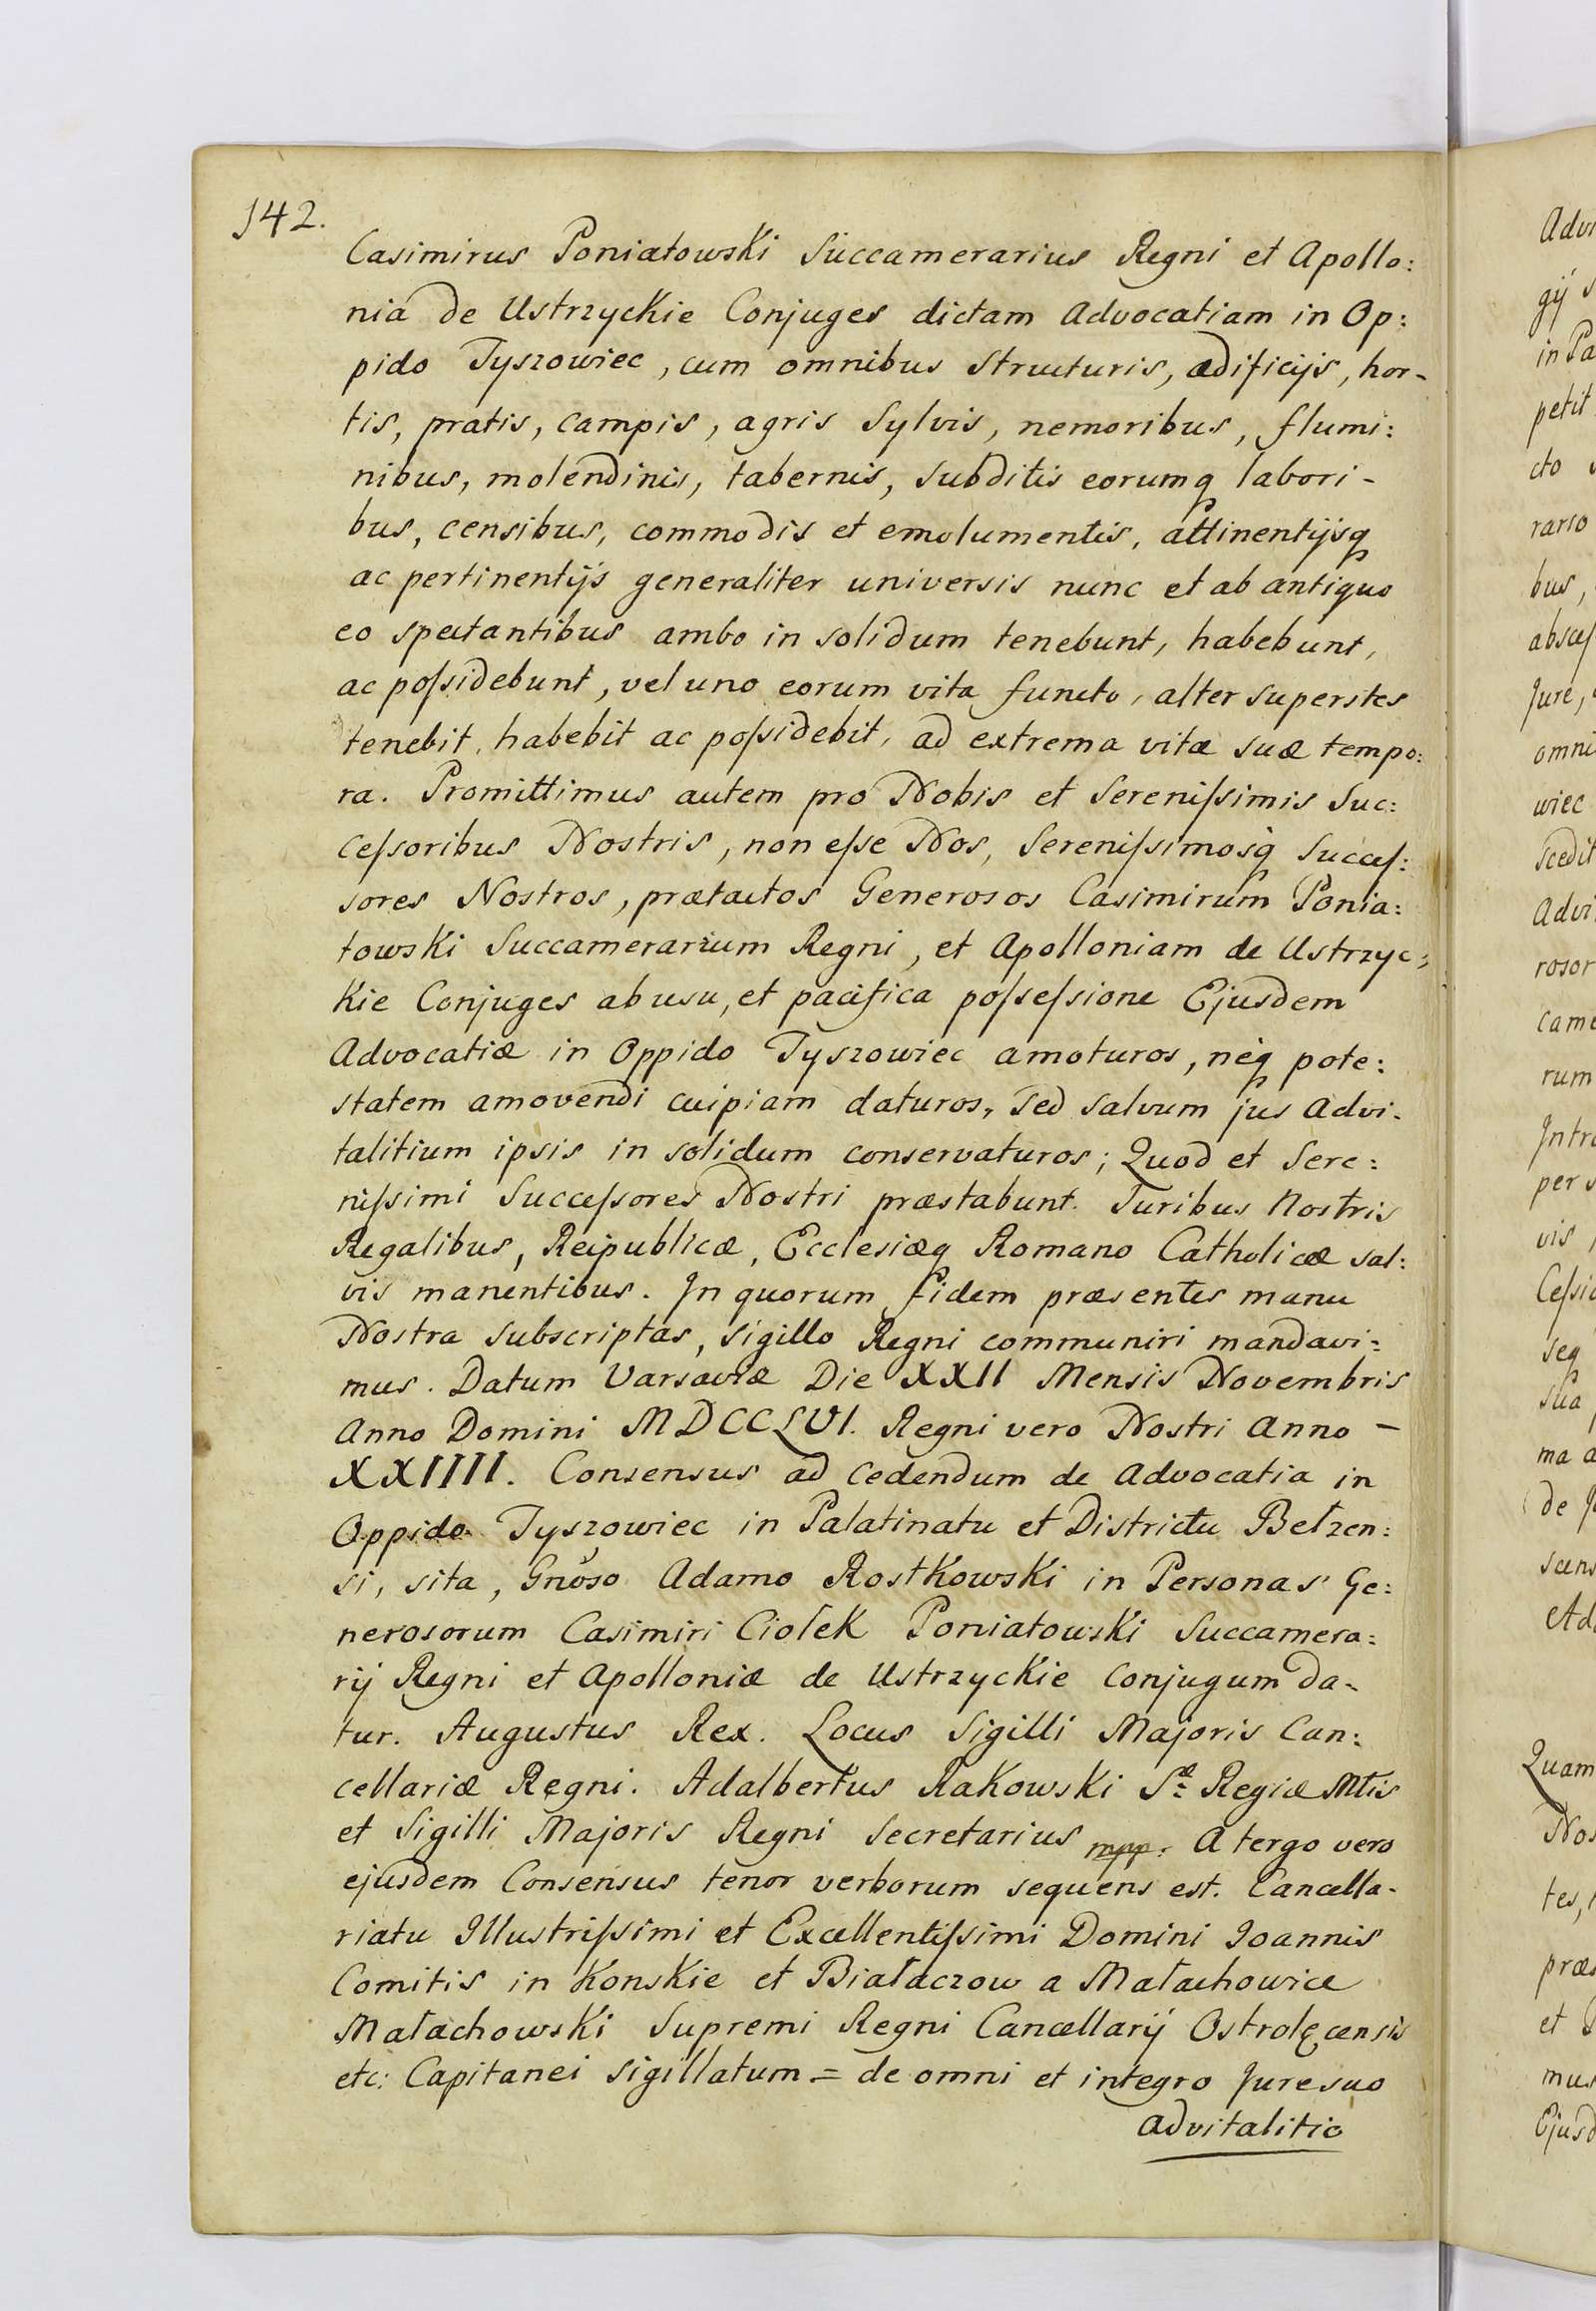 142.
Casimirus Poniatowski Succamerarius Regni et Apollo:
nia de Ustrzyckie Conjuges dictam Advocatiam in Op:
pido Tyszowiec, cum omnibus structuris, ædificijs, hor-
tis, pratis, campis, agris Sylvis, nemoribus, flumi:
nibus, molendinis, tabernis, subditis eorumq labori-
bus, censibus, commodis et emolumentis, attinentijsq
ac pertinentijs generaliter universis nunc et ab antiquo
eo spectantibus ambo in solidum tenebunt, habebunt,
ac poſsidebunt, vel uno eorum vita functo, alter superstes
tenebit, habebit ac poſsidebit, ad extrema vitæ suæ tempo:
ra. Promittimus autem pro Nobis et Sereniſsimis Suc:
ceſsoribus Nostris, non eſse Nos, Sereniſsimosq Succeſ:
sores Nostros, prætactos Generosos Casimirum Ponia:
towski Succamerarium Regni, et Apolloniam de Ustrzyc:
kie Conjuges ab usu, et pacifica poſseſsione Ejusdem
Advocatiæ in Oppido Tyszowiec amoturos, neq pote:
statem amovendi cuipiam daturos, sed salvum jus Advi-
talitium ipsis in solidum conservaturos; Quod et Sere:
niſsimi Succeſsores Nostri præstabunt. Juribus Nostris
Regalibus, Reipublicæ, Ecclesiæq Romano Catholicæ sal:
vis manentibus. In quorum fidem præsentes manu
Nostra subscriptas, sigillo Regni communiri mandavi:
mus. Datum Varsaviæ Die XXII Mensis Novembris
Anno Domini MDCCLVI. Regni vero Nostri Anno –
XXIIII. Consensus ad cedendum de Advocatia in
Oppido Tyszowiec in Palatinatu et Districtu Belzen:
si, sita, Gnoso Adamo Rostkowski in Personas Ge:
nerosorum Casimiri Ciołek Poniatowski Succamera:
rij Regni et Apolloniæ de Ustrzyckie Conjugum da-
tur. Augustus Rex. Locus Sigilli Majoris Can:
cellariæ Regni. Adalbertus Rakowski Sæ Regiæ Mtis
et Sigilli Majoris Regni Secretarius mpp. A tergo vero
ejusdem Consensus tenor verborum sequens est. Cancella-
riatu Illustriſsimi et Excellentiſsimi Domini Joannis
Comitis in Konskie et Białaczow a Małachowice
Małachowski Supremi Regni Cancellarij Ostrolęcensis
etc: Capitanei sigillatum = de omni et integro Jure suo
advitalitio
gij
in Pa
petit
cto
rario
bus,
Jure,
omni
wiec
scedit
Advi
rosor
came
rum
Intro
per
vis
seq
sua
ma a
de
Quam
Nos
tes,
præ
et
mus
Ejusd